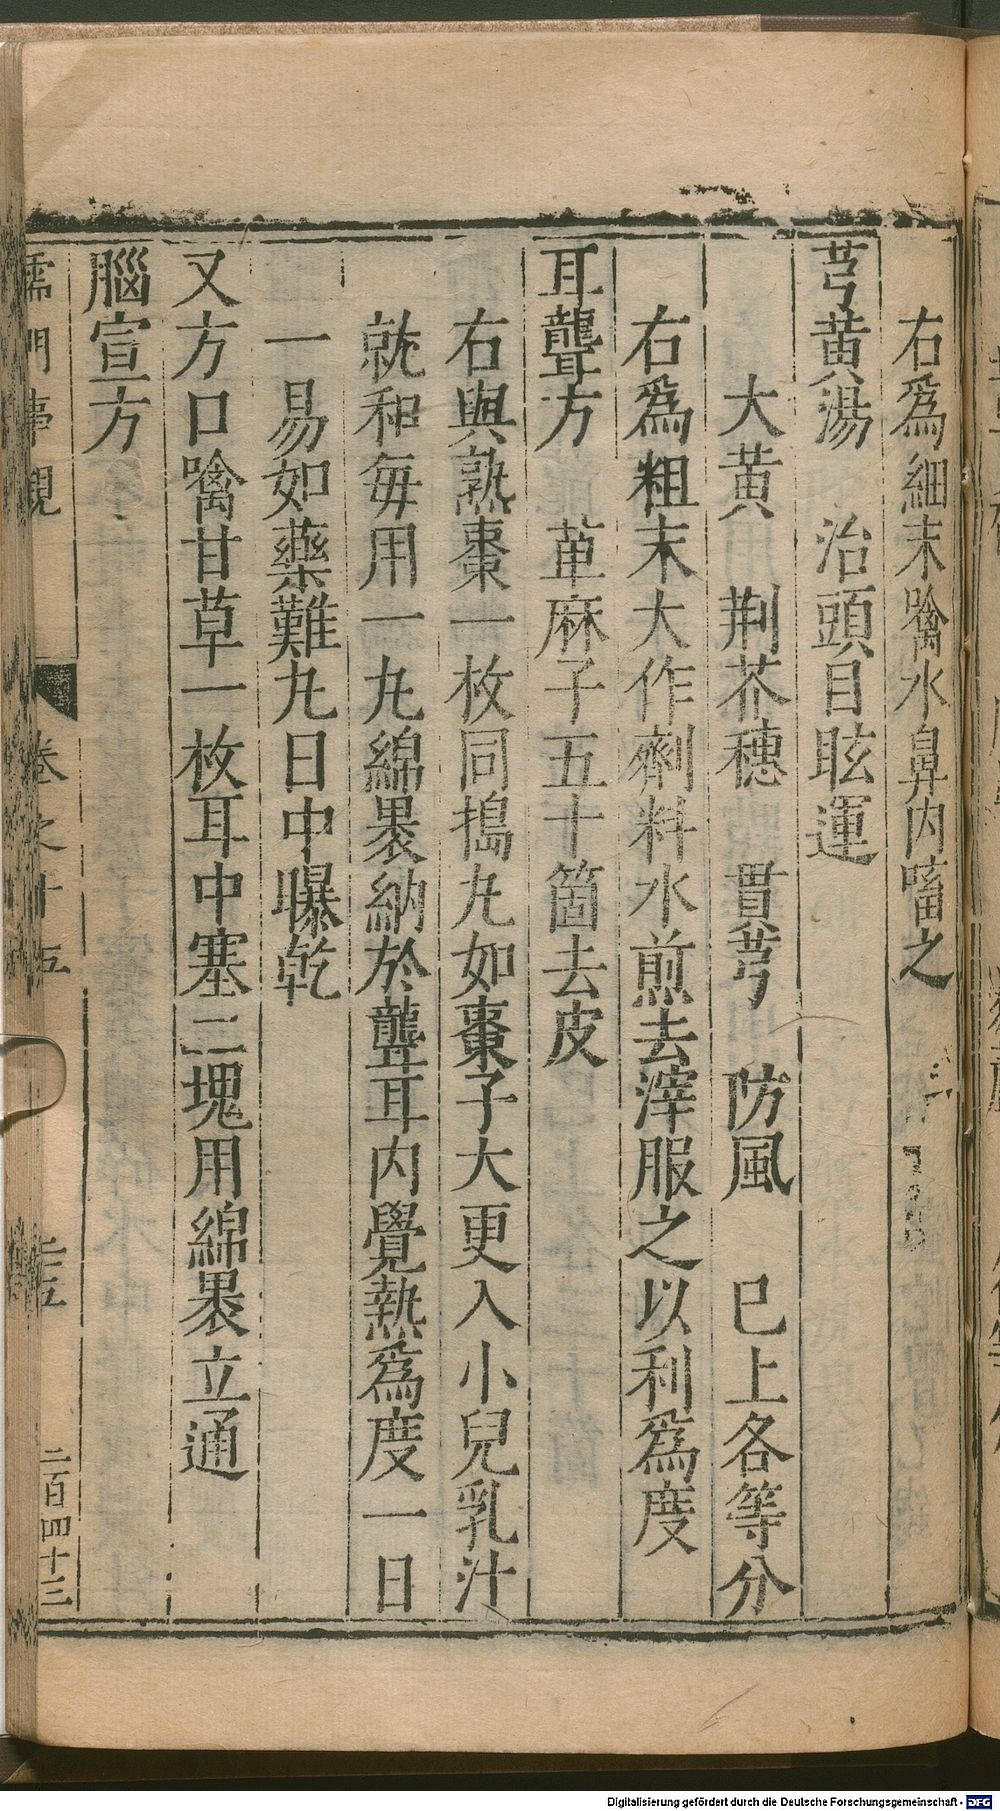 右爲細末噙水鼻內㗜之
芎黃湯　治頭目眩運
大黃　荆芥穗　貫芎　防風　已上各等分
右爲粗末大作劑料水煎去滓服之以利爲度
耳聾方　萆麻子五十箇去皮
右與熟棗一枚同搗丸如棗子大更入小兒乳汁
就和每用一丸綿褁納於聾耳內覺熱爲度一日
一易如藥難丸日中曝乾
又方口噙甘草一枚耳中塞二塊用綿褁立通
腦宣方
儒門事親　卷之十五　二百四十三
Digitalisierung gefördert durch die Deutsche Forschungsgemeinschaft - DFG